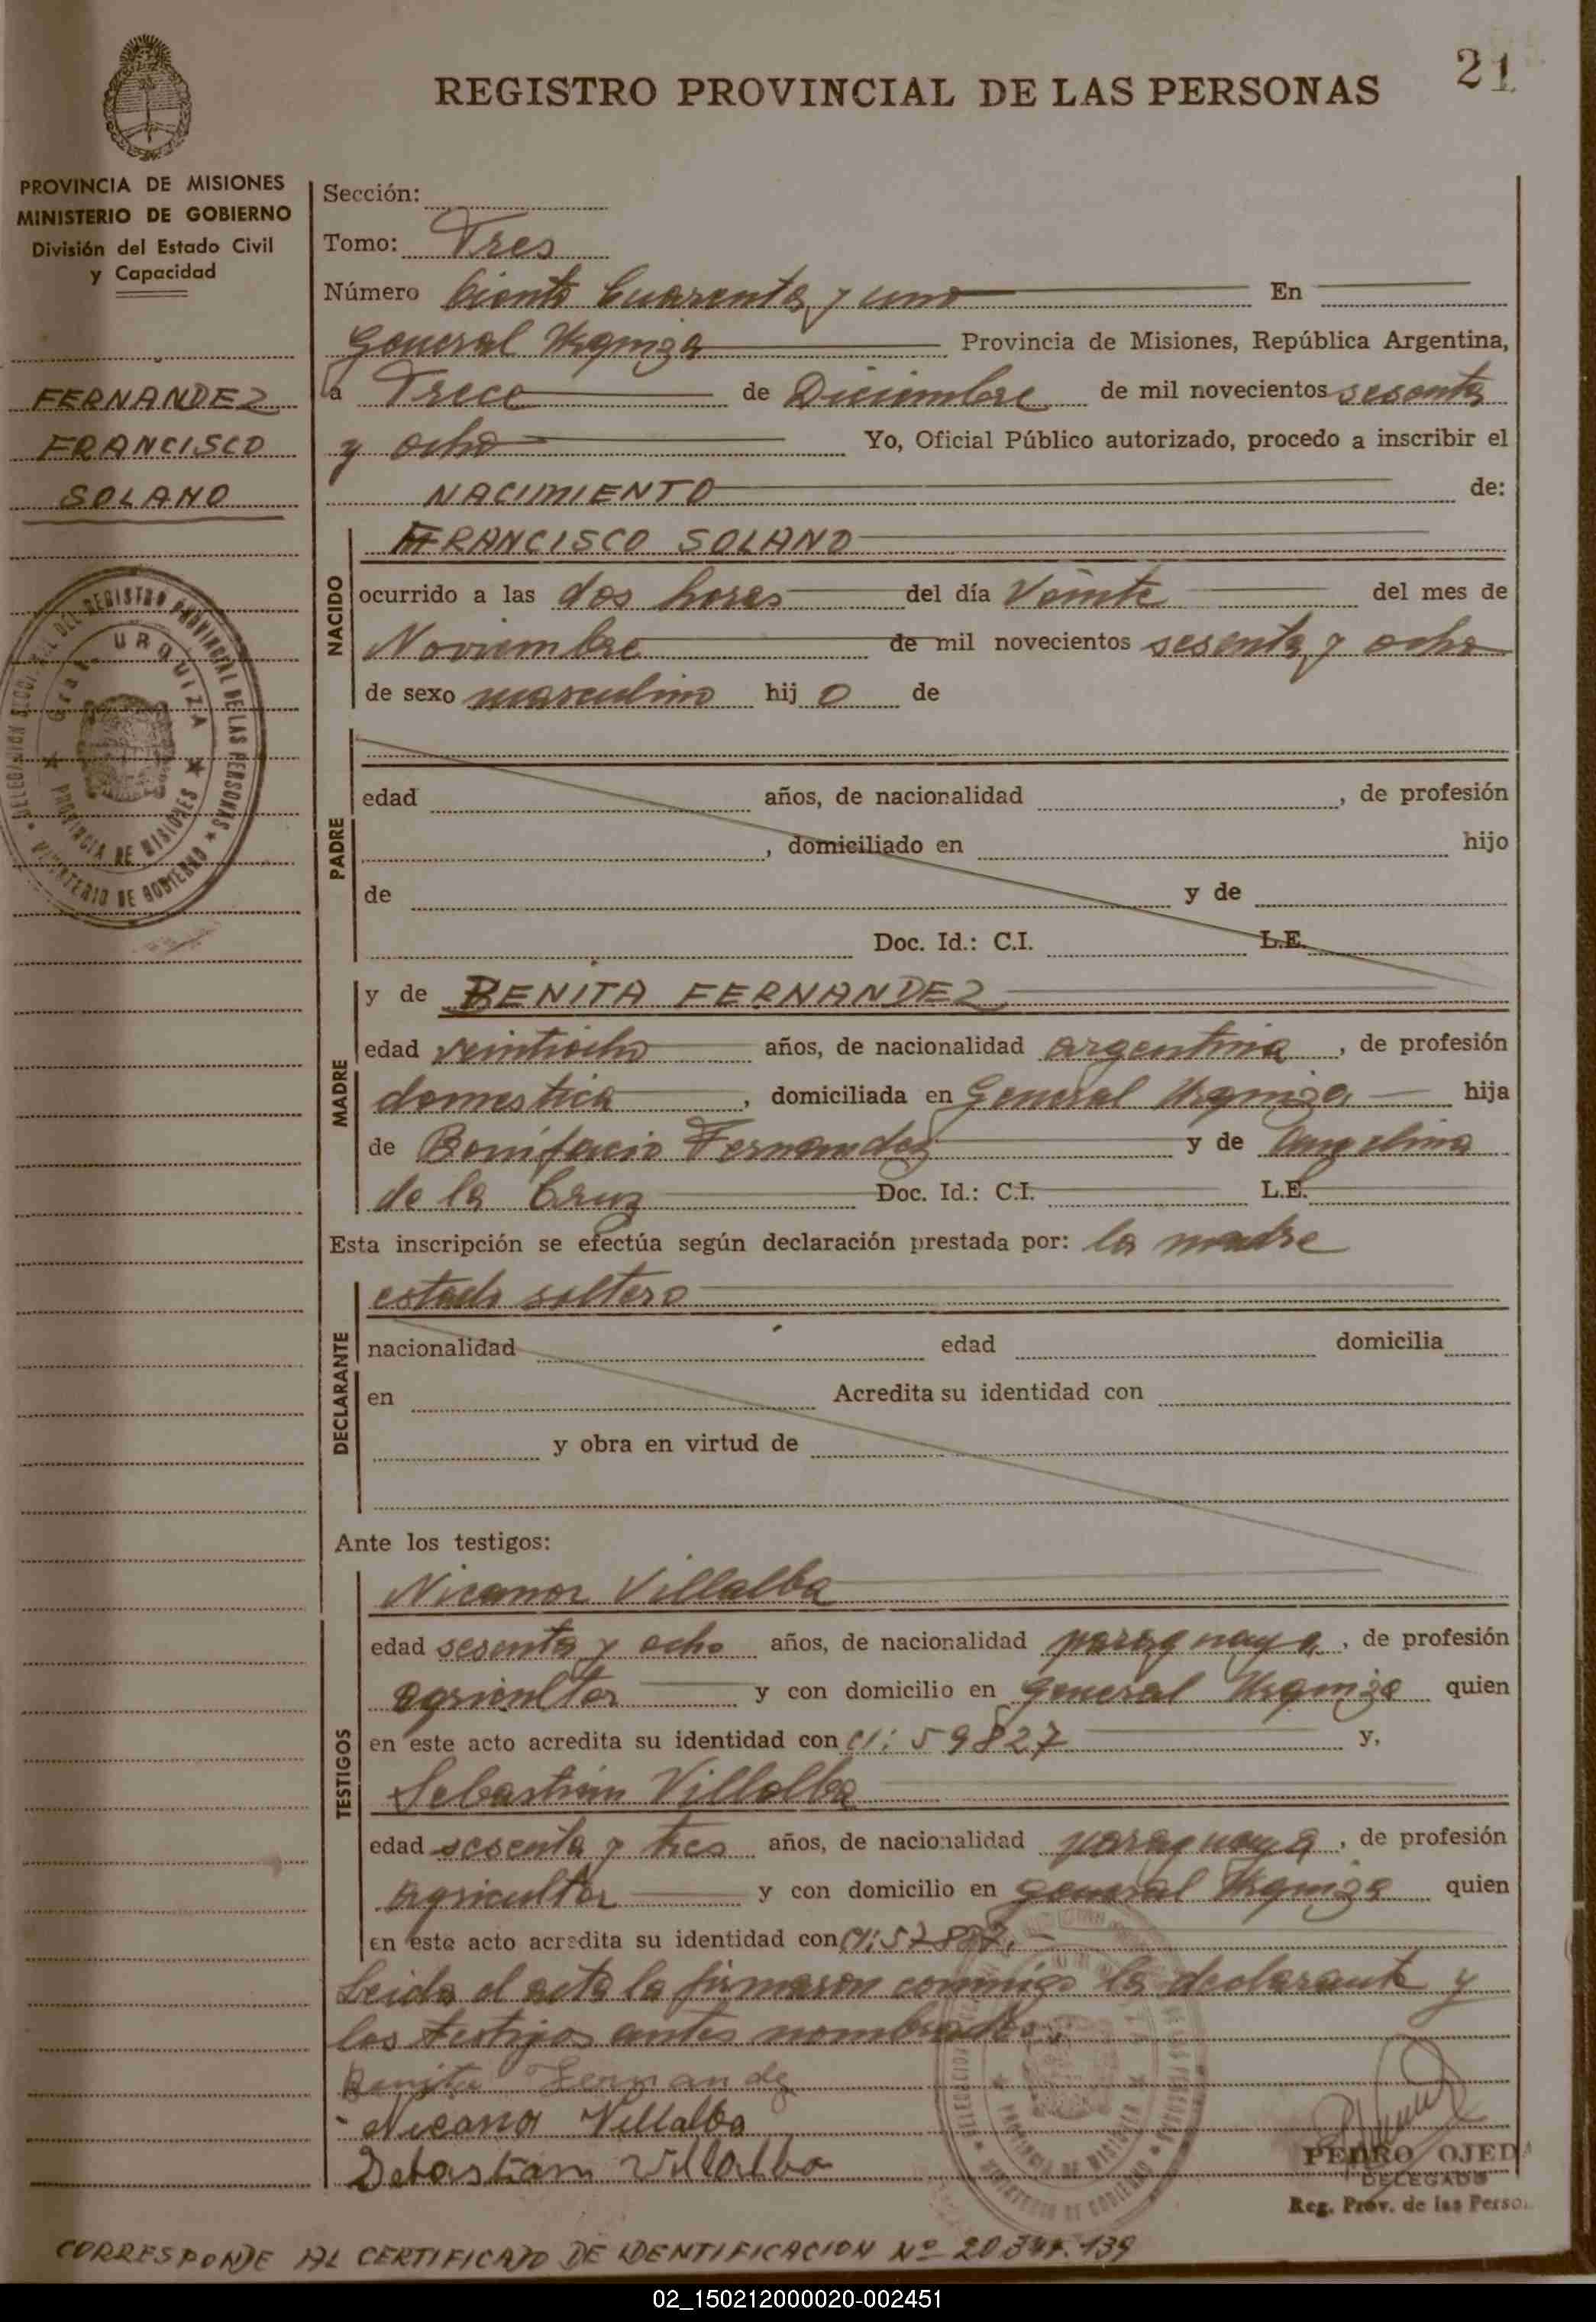 21
REGISTRO PROVINCIAL DE LAS PERSONAS
PROVINCIA DE MISIONES
MINISTERIO DE GOBIERNO
División del Estado Civil
y Capacidad
FERNANDEZ
FRANCISCO
SOLANO
Gral. URQUIZA
PROVINCIA DE MISIONES
DEL REGISTRO PROVINCIAL DE LAS PERSONAS
MINISTERIO DE GOBIERNO
Sección:
Tomo: Tres
Número Ciento Cuarenta y uno En
General Urquiza Provincia de Misiones, República Argentina,
a Trece de Diciembre de mil novecientos sesenta
y ocho Yo, Oficial Público autorizado, procedo a inscribir el
NACIMIENTO de:
NACIDO
FRANCISCO SOLANO
ocurrido a las dos horas del día Veinte del mes de
Noviembre de mil novecientos sesenta y ocho
de sexo masculino hij o de
PADRE
edad años, de nacionalidad , de profesión
, domiciliado en hijo
de y de
Doc. Id.: C.I. L.E.
MADRE
y de BENITA FERNANDEZ
edad veintiocho años, de nacionalidad argentina, de profesión
domestica, domiciliada en General Urquiza hija
de Bonifacio Fernandez y de Angelina
de la Cruz Doc. Id.: C.I. L.E.
Esta inscripción se efectúa según declaración prestada por: la madre
DECLARANTE
estado soltera
nacionalidad edad domicilia
en Acredita su identidad con
y obra en virtud de
Ante los testigos:
TESTIGOS
Nicanor Villalba
edad sesenta y ocho años, de nacionalidad paraguaya, de profesión
agricultor y con domicilio en general Urquiza quien
en este acto acredita su identidad con CI: 59827 y,
Sebastian Villalba
edad sesenta y tres años, de nacionalidad paraguaya, de profesión
agricultor y con domicilio en general Urquiza quien
en este acto acredita su identidad con CI:
Leida el acta la firmaron conmigo la declarante y
los testigos antes nombrados.
Benita Fernandez
Nicanor Villalba
Sebastian Villalba
PEDRO OJEDA
DELEGADO
Reg. Prov. de las Perso
CORRESPONDE AL CERTIFICADO DE IDENTIFICACION Nº
02_150212000020-002451